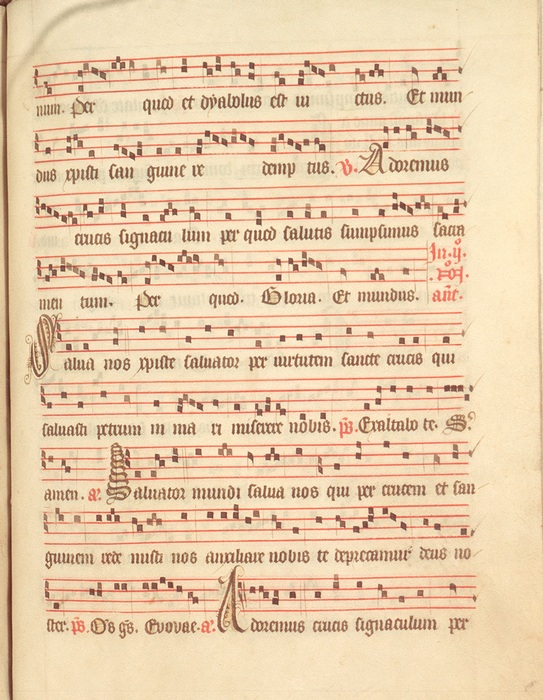 num. Per quod et dyabolus est in ctus. Et mun
dus xpisti san guine re demp tus. v. Adoremus
crucis signacu lum per quod salutis sumpsimus sacra
men tum. Per quod. Gloria. Et mundus. In ij. ant.
Salua nos xpiste saluator per uirtutem sancte crucis qui
saluasti petrum in ma ri miserere nobis. ps. Exaltabo te.
amen. a. Saluator mundi salua nos qui per crucem et san
guinem rede misti nos auxiliare nobis te deprecamur deus no
ster. ps. Os gs. Evovae. a. Adoremus crucis signaculum per